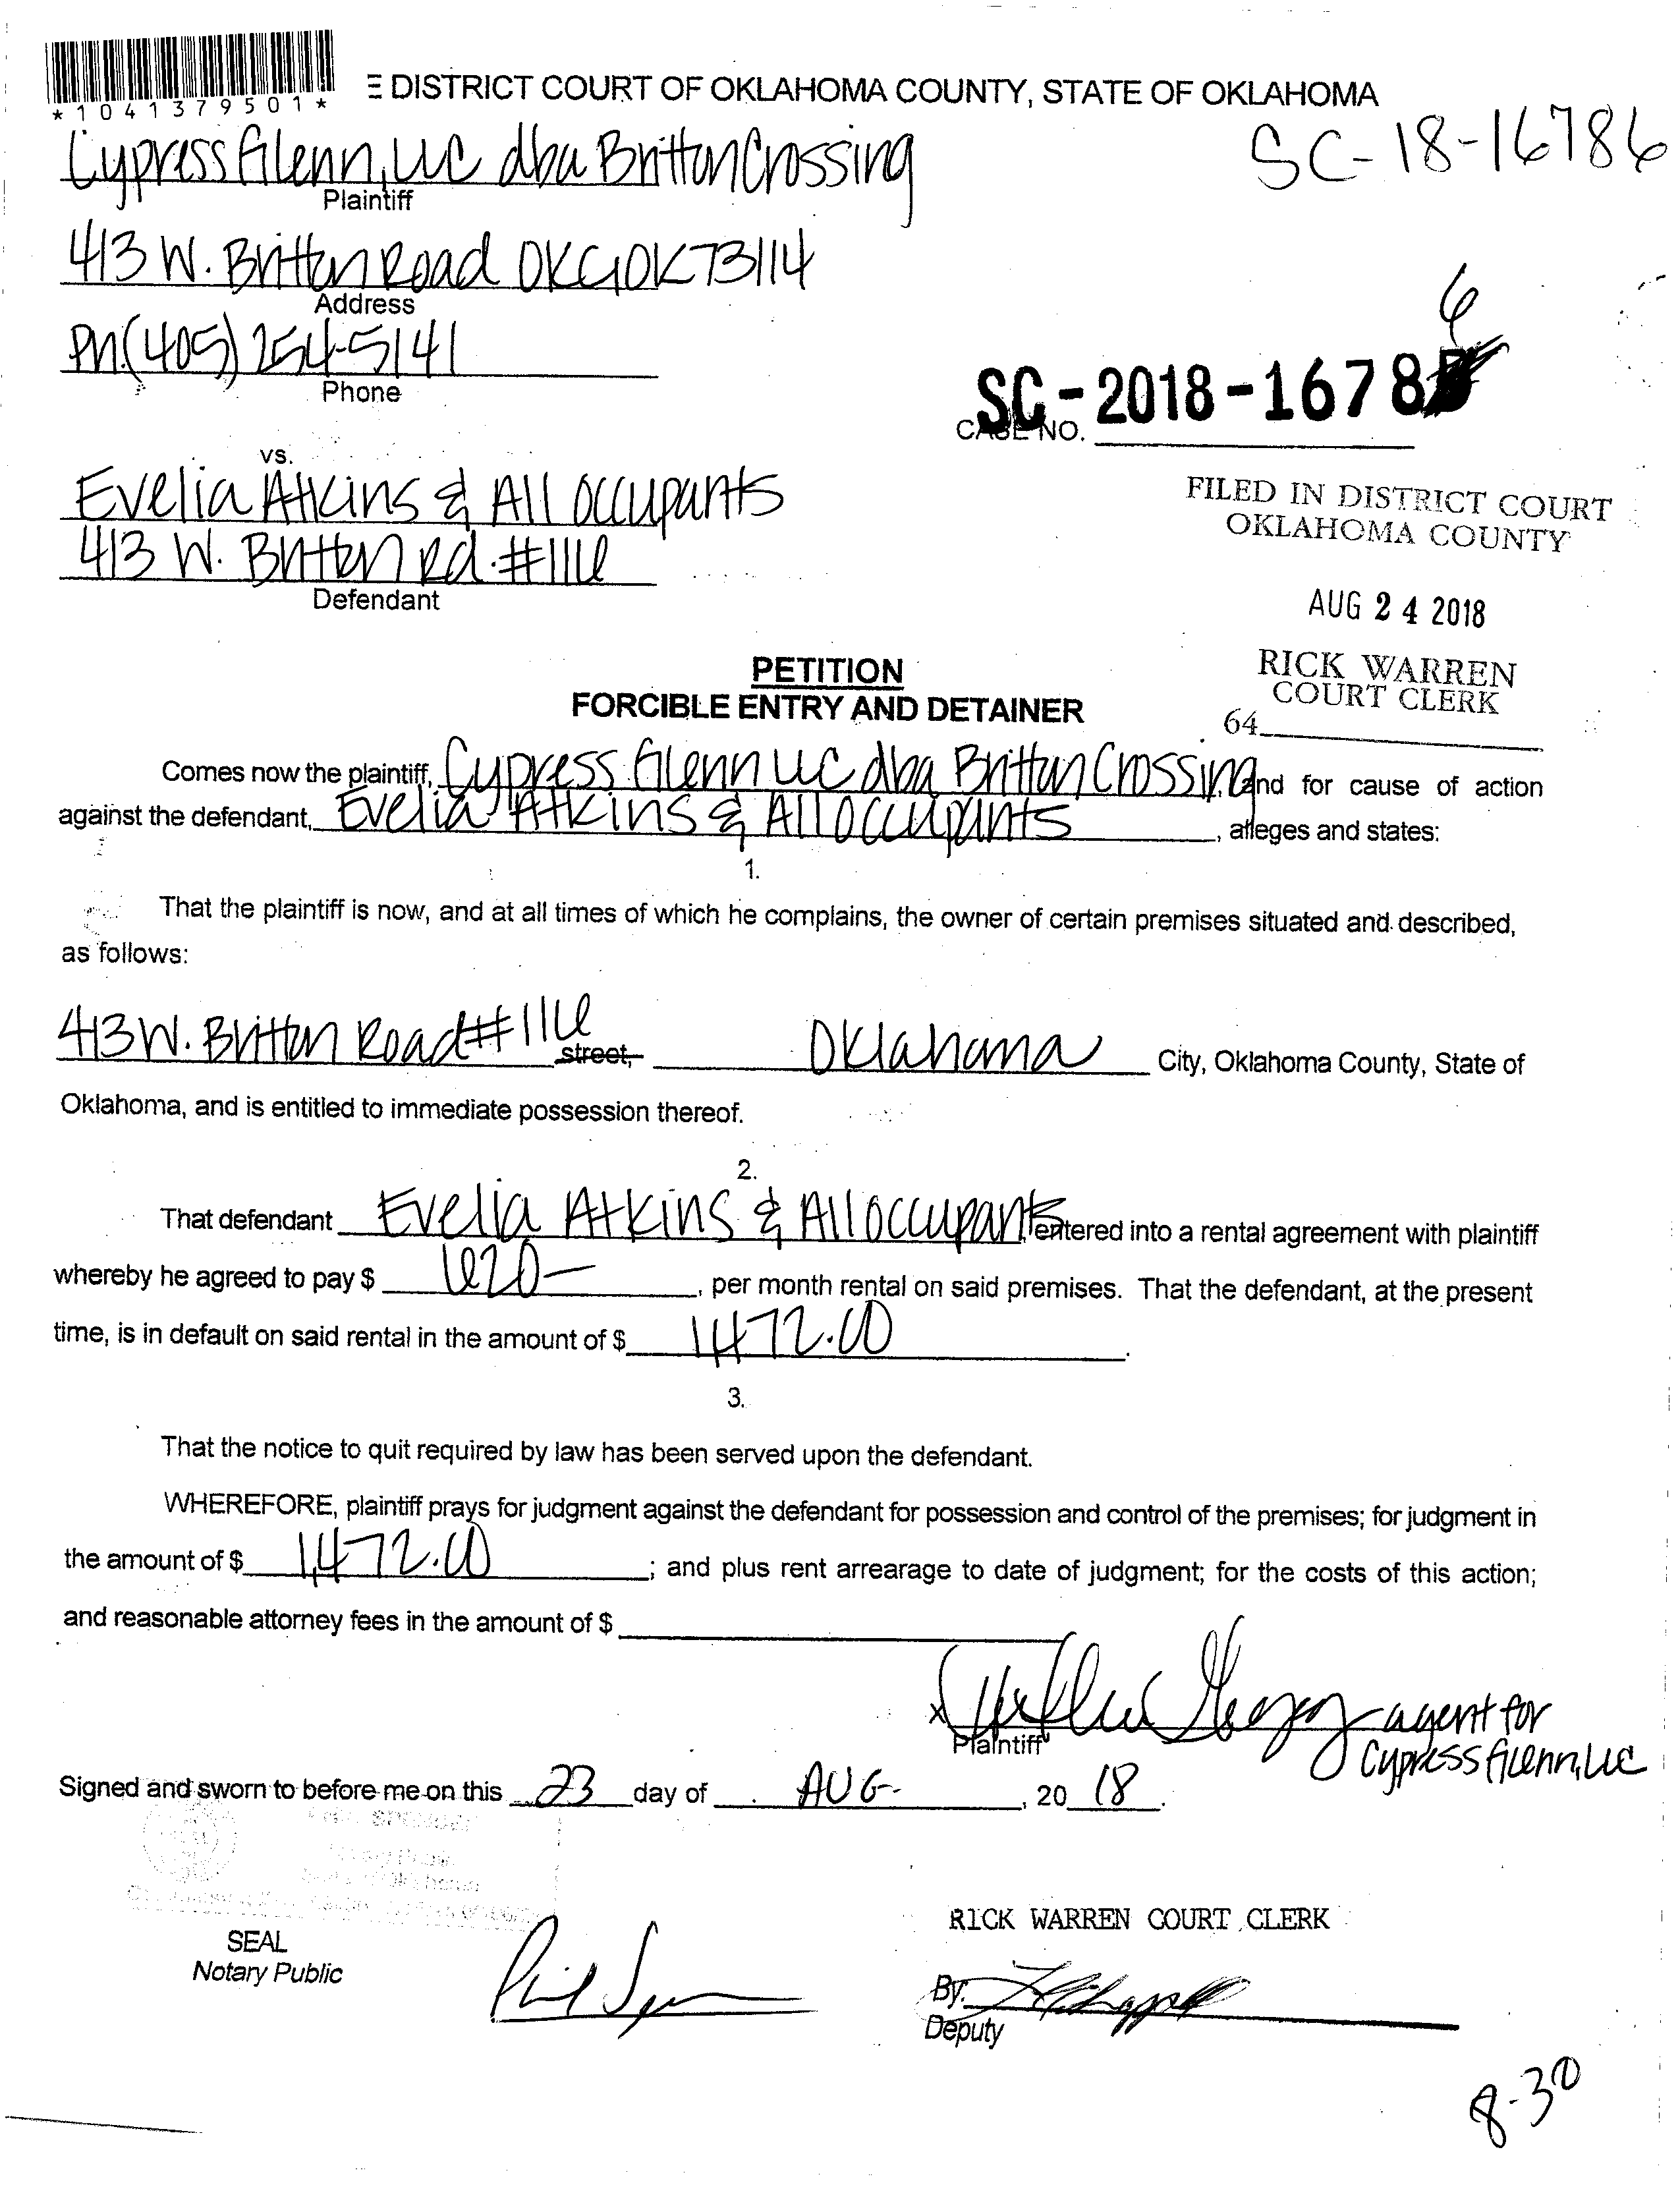 *1041379501*
E DISTRICT COURT OF OKLAHOMA COUNTY, STATE OF OKLAHOMA
SC-18-16786
Cypress Glenn, LLC dba Britton Crossing
Plaintiff
413 W. Britton Road OKC, OK 73114
Address
Ph. (405) 254-5141
Phone
6
SC-2018-1678
CASE NO.
vs.
Evelia Atkins & All occupants
413 W. Britton Rd. #116
Defendant
FILED IN DISTRICT COURT
OKLAHOMA COUNTY
AUG 24 2018
RICK WARREN
COURT CLERK
64
PETITION
FORCIBLE ENTRY AND DETAINER
Comes now the plaintiff, Cypress Glenn LLC dba Britton Crossing and for cause of action
against the defendant, Evelia Atkins & All occupants, alleges and states:
1.
That the plaintiff is now, and at all times of which he complains, the owner of certain premises situated and described,
as follows:
413 W. Britton Road #116 street, Oklahoma City, Oklahoma County, State of
Oklahoma, and is entitled to immediate possession thereof.
2.
That defendant Evelia Atkins & All occupants, entered into a rental agreement with plaintiff
whereby he agreed to pay $ 620-, per month rental on said premises. That the defendant, at the present
time, is in default on said rental in the amount of $ 1472.00.
3.
That the notice to quit required by law has been served upon the defendant.
WHEREFORE, plaintiff prays for judgment against the defendant for possession and control of the premises; for judgment in
the amount of $ 1,472.00; and plus rent arrearage to date of judgment; for the costs of this action;
and reasonable attorney fees in the amount of $
x agent for
Plaintiff Cypress Glenn, LLC
Signed and sworn to before me on this 23 day of AUG., 2018.
SEAL
Notary Public
RICK WARREN COURT CLERK
By:
Deputy
8-30